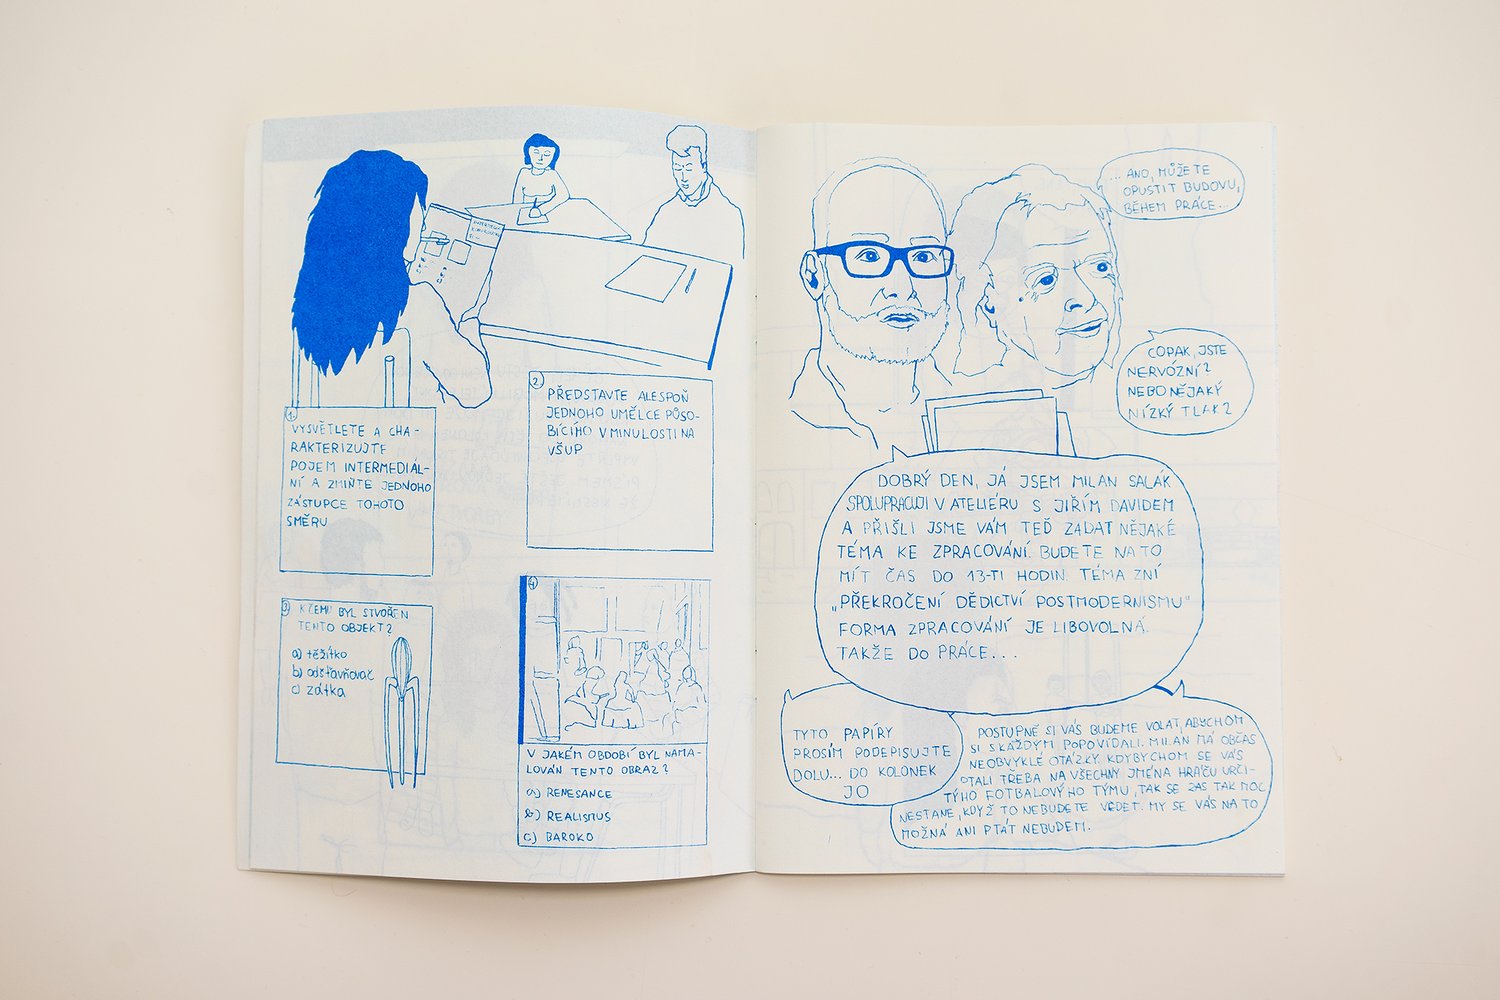 1.
VYSVĚTLETE A CHA-
RAKTERIZUJTE
POJEM INTERMEDIÁL-
NÍ A ZMIŇTE JEDNOHO
ZÁSTUPCE TOHOTO
SMĚRU
2.
PŘEDSTAVTE ALESPOŇ
JEDNOHO UMĚLCE PŮSO-
BÍCÍHO V MINULOSTI NA
VŠUP
3
K ČEMU BYL STVOŘEN
TENTO OBJEKT?
a) těžítko
b) odšťavňovač
c) zátka
4
V JAKÉM OBDOBÍ BYL NAMA-
LOVÁN TENTO OBRAZ?
a) RENESANCE
b) REALISMUS
c) BAROKO
... ANO, MŮŽETE
OPUSTIT BUDOVU,
BĚHEM PRÁCE...
COPAK, JSTE
NERVÓZNÍ?
NEBO NĚJAKÝ
NÍZKÝ TLAK?
DOBRÝ DEN, JÁ JSEM MILAN SALÁK
SPOLUPRACUJI V ATELIÉRU S JIŘÍM DAVIDEM
A PŘIŠLI JSME VÁM TEĎ ZADAT NĚJAKÉ
TÉMA KE ZPRACOVÁNÍ. BUDETE NA TO
MÍT ČAS DO 13-TI HODIN. TÉMA ZNÍ
„PŘEKROČENÍ DĚDICTVÍ POSTMODERNISMU"
FORMA ZPRACOVÁNÍ JE LIBOVOLNÁ.
TAKŽE DO PRÁCE...
TYTO PAPÍRY
PROSÍM PODEPISUJTE
DOLU... DO KOLONEK
JO
POSTUPNĚ SI VÁS BUDEME VOLAT, ABYCHOM
SI S KAŽDÝM POPOVÍDALI. MILAN MÁ OBČAS
NEOBVYKLÉ OTÁZKY. KDYBYCHOM SE VÁS
OTALI TŘEBA NA VŠECHNY JMÉNA HRÁČŮ URČI-
TÝHO FOTBALOVÝHO TÝMU, TAK SE ZAS TAK MOC
NESTANE, KDYŽ TO NEBUDETE VĚDĚT. MY SE VÁS NA TO
MOŽNÁ ANI PTÁT NEBUDEM.